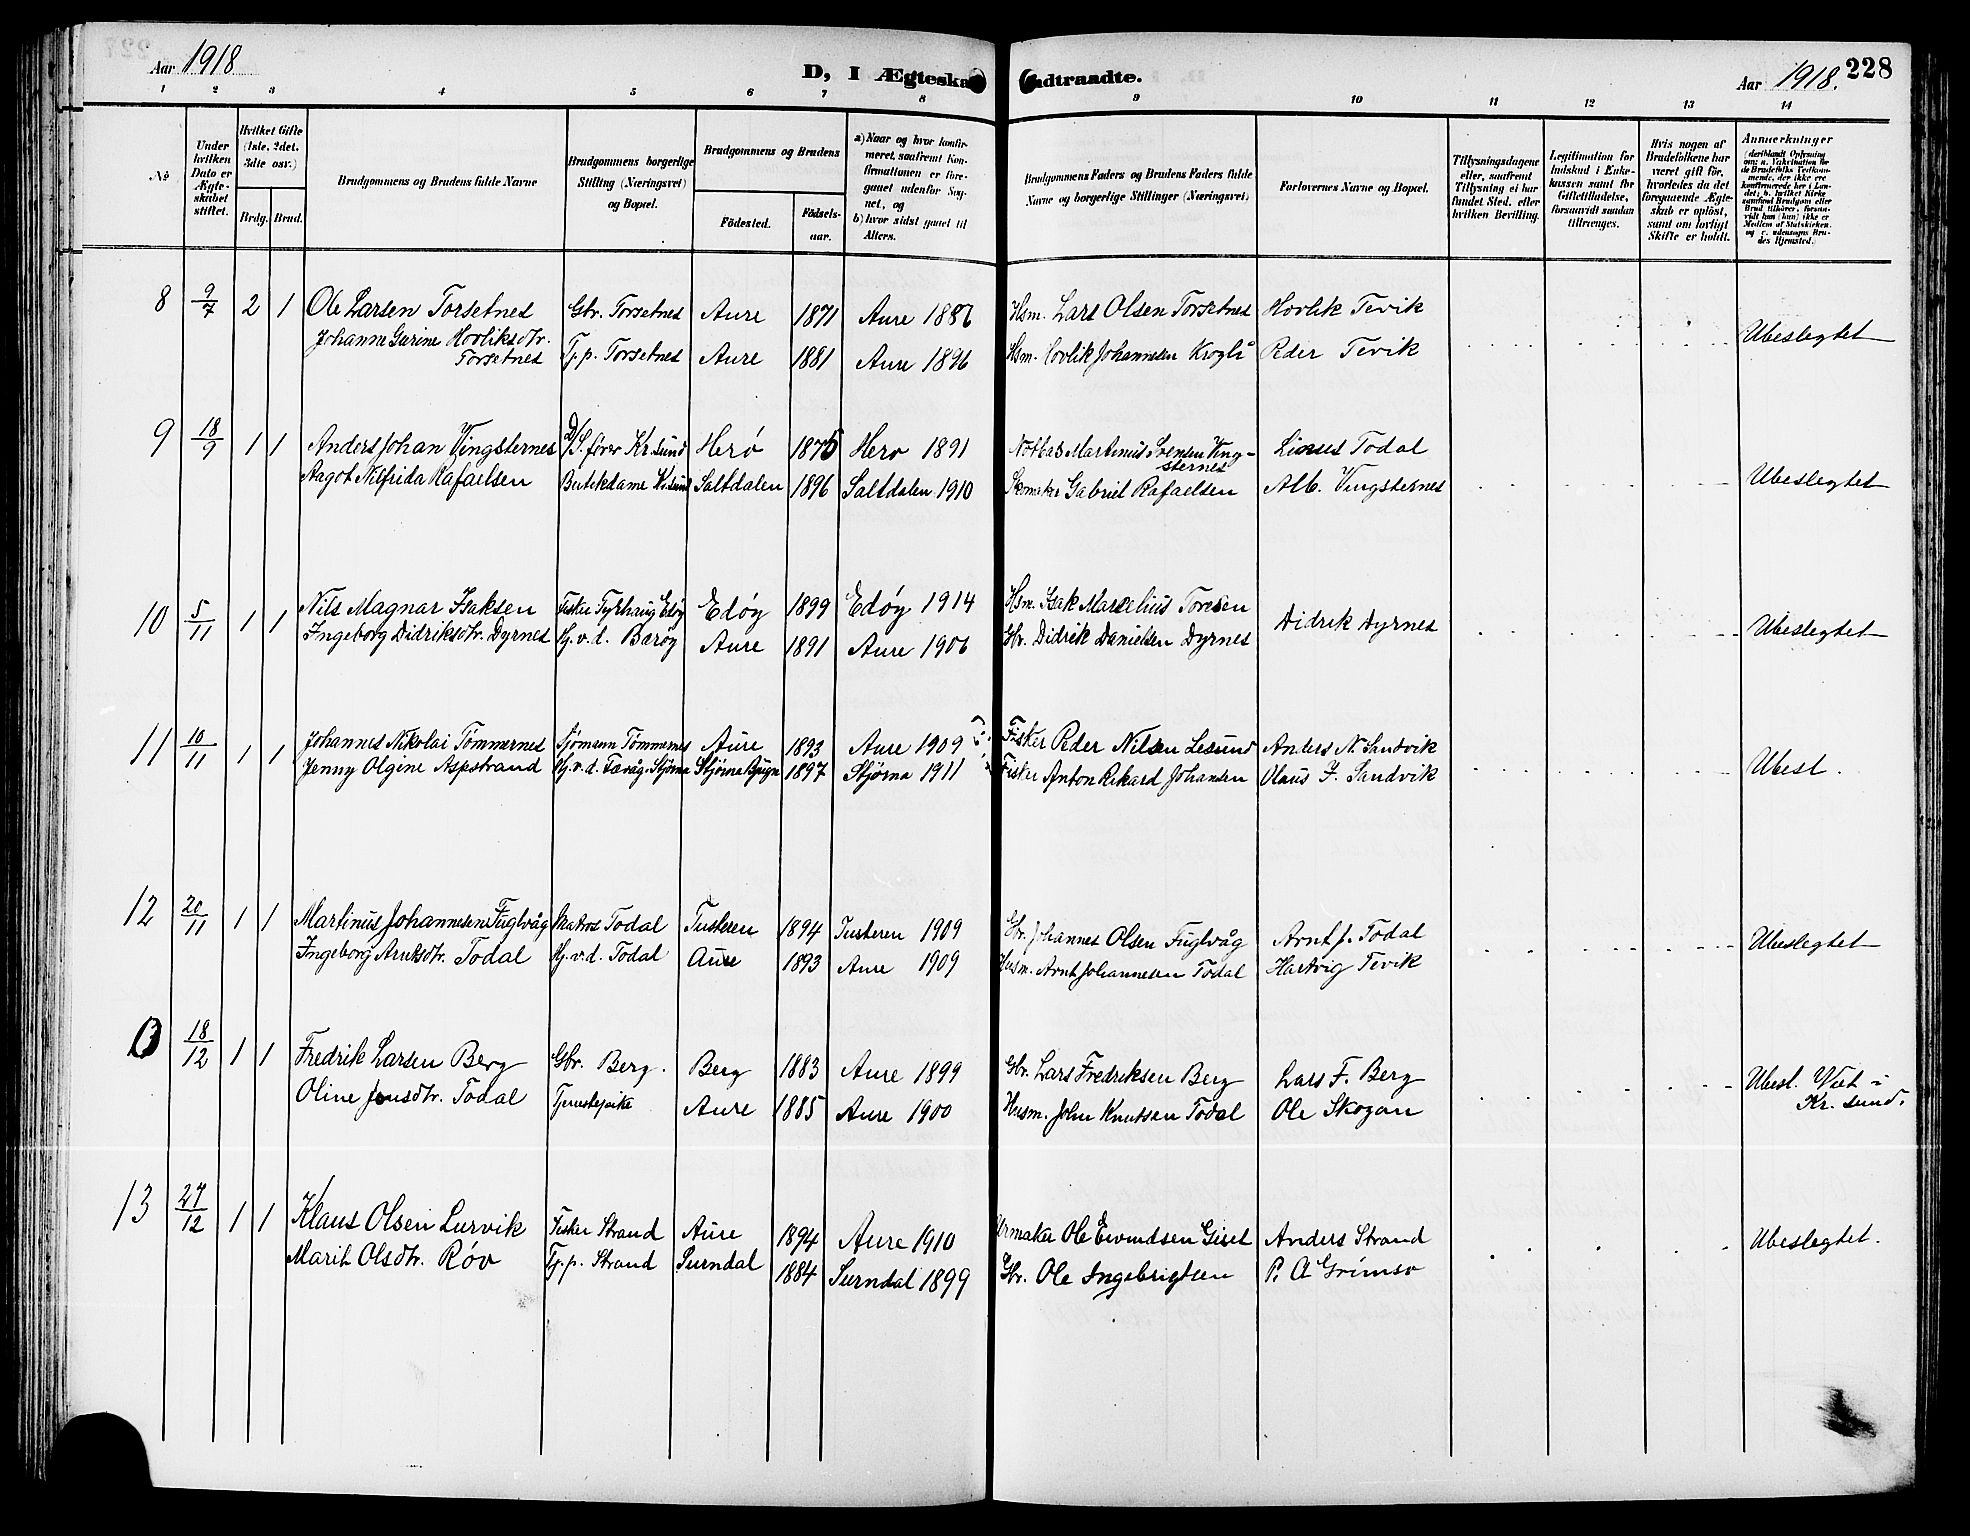 Aar 1918
D, I Ægteska
ndtraadte.
Aar 1918.
228
1 2 3 4 5 6 7 8 9 10 11 12 13 14
No
Under hvilken Dato er Ægteskabet stiftet.
Hvilket Gifte (1ste, 2det, 3die osv.)
Brdg. Brud.
Brudgommens og Brudens fulde Navne
Brudgommens borgerlige Stilling (Næringsvei) og Bopæl.
Brudgommens og Brudens
Födested.
Födsels-aar.
a) Naar og hvor konfirmeret, saafremt Konfirmationen er foregaaet udenfor Sognet, og
b) hvor sidst gaaet til Alters.
Brudgommens Faders og Brudens Faders fulde Navne og borgerlige Stillinger (Næringsvei)
Forlovernes Navne og Bopæl.
Tillysningsdagene eller, saafremt Tillysning ei har fundet Sted, efter hvilken Bevilling.
Legitimation for Indskud i Enkekassen samt for Giftetilladelse, forsaavidt saadan tiltrænges.
Hvis nogen af Brudefolkene har været gift før, hvorledes da det foregaaende Ægteskab er oplöst, samt om lovligt Skifte er holdt.
Anmerkninger
8 9/7 2 1 Ole Larsen Torsetnes Gbr. Torsetnes Aure 1871 Aure 1886 Hsm. Lars Olsen Torsetnes Hovlik Tevik
Johanne Gurine Hovliksdtr. Torsetnes Tj.p. Torsetnes Aure 1881 Aure 1896 Hsm. Hovlik Johannesen Krogli Peder Tevik Ubeslegtet
9 18/9 1 1 Anders Johan Vingsternes D/S. fører Kr.sund Herø 1875 Herø 1891 Notbas Martinus Svensen Vingsternes Linses Todal
Aagot Nilfrida Rafaelsen Butikdame Kr.sund Saltdalen 1896 Saltdalen 1910 Skomaker Gabriel Rafaelsen Alb. Vingsternes Ubeslegtet
10 5/11 1 1 Nils Magnar Isaksen Fisker Tyrhaug Edøy Edøy 1899 Edøy 1914 Hsm. Isak Marselius Toresen
Ingeborg Didriksdtr. Dyrnes Hj.v.d. Barøy Aure 1891 Aure 1906 Gbr. Didrik Danielsen Dyrnes Didrik Dyrnes Ubeslegtet
11 10/11 1 1 Johannes Nikolai Tømmernes Sjømann Tømmernes Aure 1893 Aure 1909 Fisker Peder Nilsen Lesund Anders N. Sandvik
Jenny Olgine Aspstrand Hj.v.d. Stjørna 1897 Stjørna 1911 Fisker Anton Rikard Johansen Olaus J. Sandvik Ubesl.
12 20/11 1 1 Martinus Johannesen Fuglvåg Matros Todal Tusteren 1894 Tusteren 1909 Gbr. Johannes Olsen Fuglvåg Arnt J. Todal
Ingeborg Arntsdtr. Todal Hj.v.d. Todal Aure 1893 Aure 1909 Husm. Arnt Johannesen Todal Hartvig Tevik Ubeslegtet
13 18/12 1 1 Fredrik Larsen Berg Gbr. Berg. Berg 1883 Aure 1899 Gbr. Lars Fredriksen Berg Lars F. Berg
Oline Jonsdtr. Todal Tjenestepike Aure 1885 Aure 1900 Husm. John Knutsen Todal Ole Skogan Ubesl. Viet i Kr. sund.
13 27/12 1 1 Klaus Olsen Lurvik Fisker Strand Aure 1894 Aure 1910 Urmaker Ole Eivindsen Giset Anders Strand
Marit Olsdtr. Røv Tj.p. Strand Surndal 1884 Surndal 1899 Gbr. Ole Ingebrigtsen P. A Grimsø Ubeslegtet.